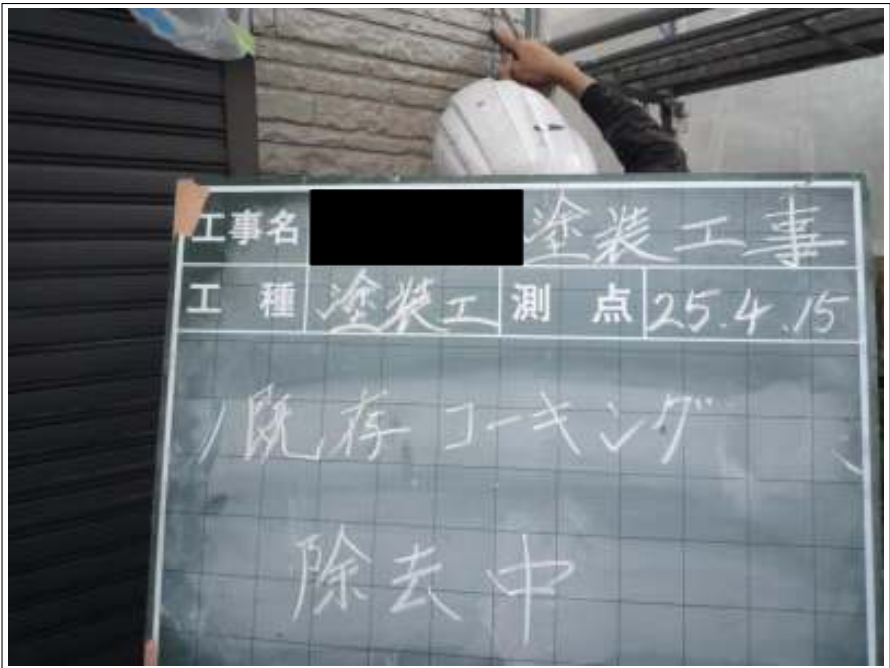 工事名 塗装工事
工種 塗装工 測点 25.4.15
既存コーキング
除去中